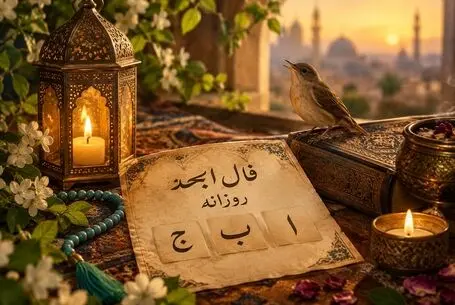 قال ابجد
روزانه
ا ب ج